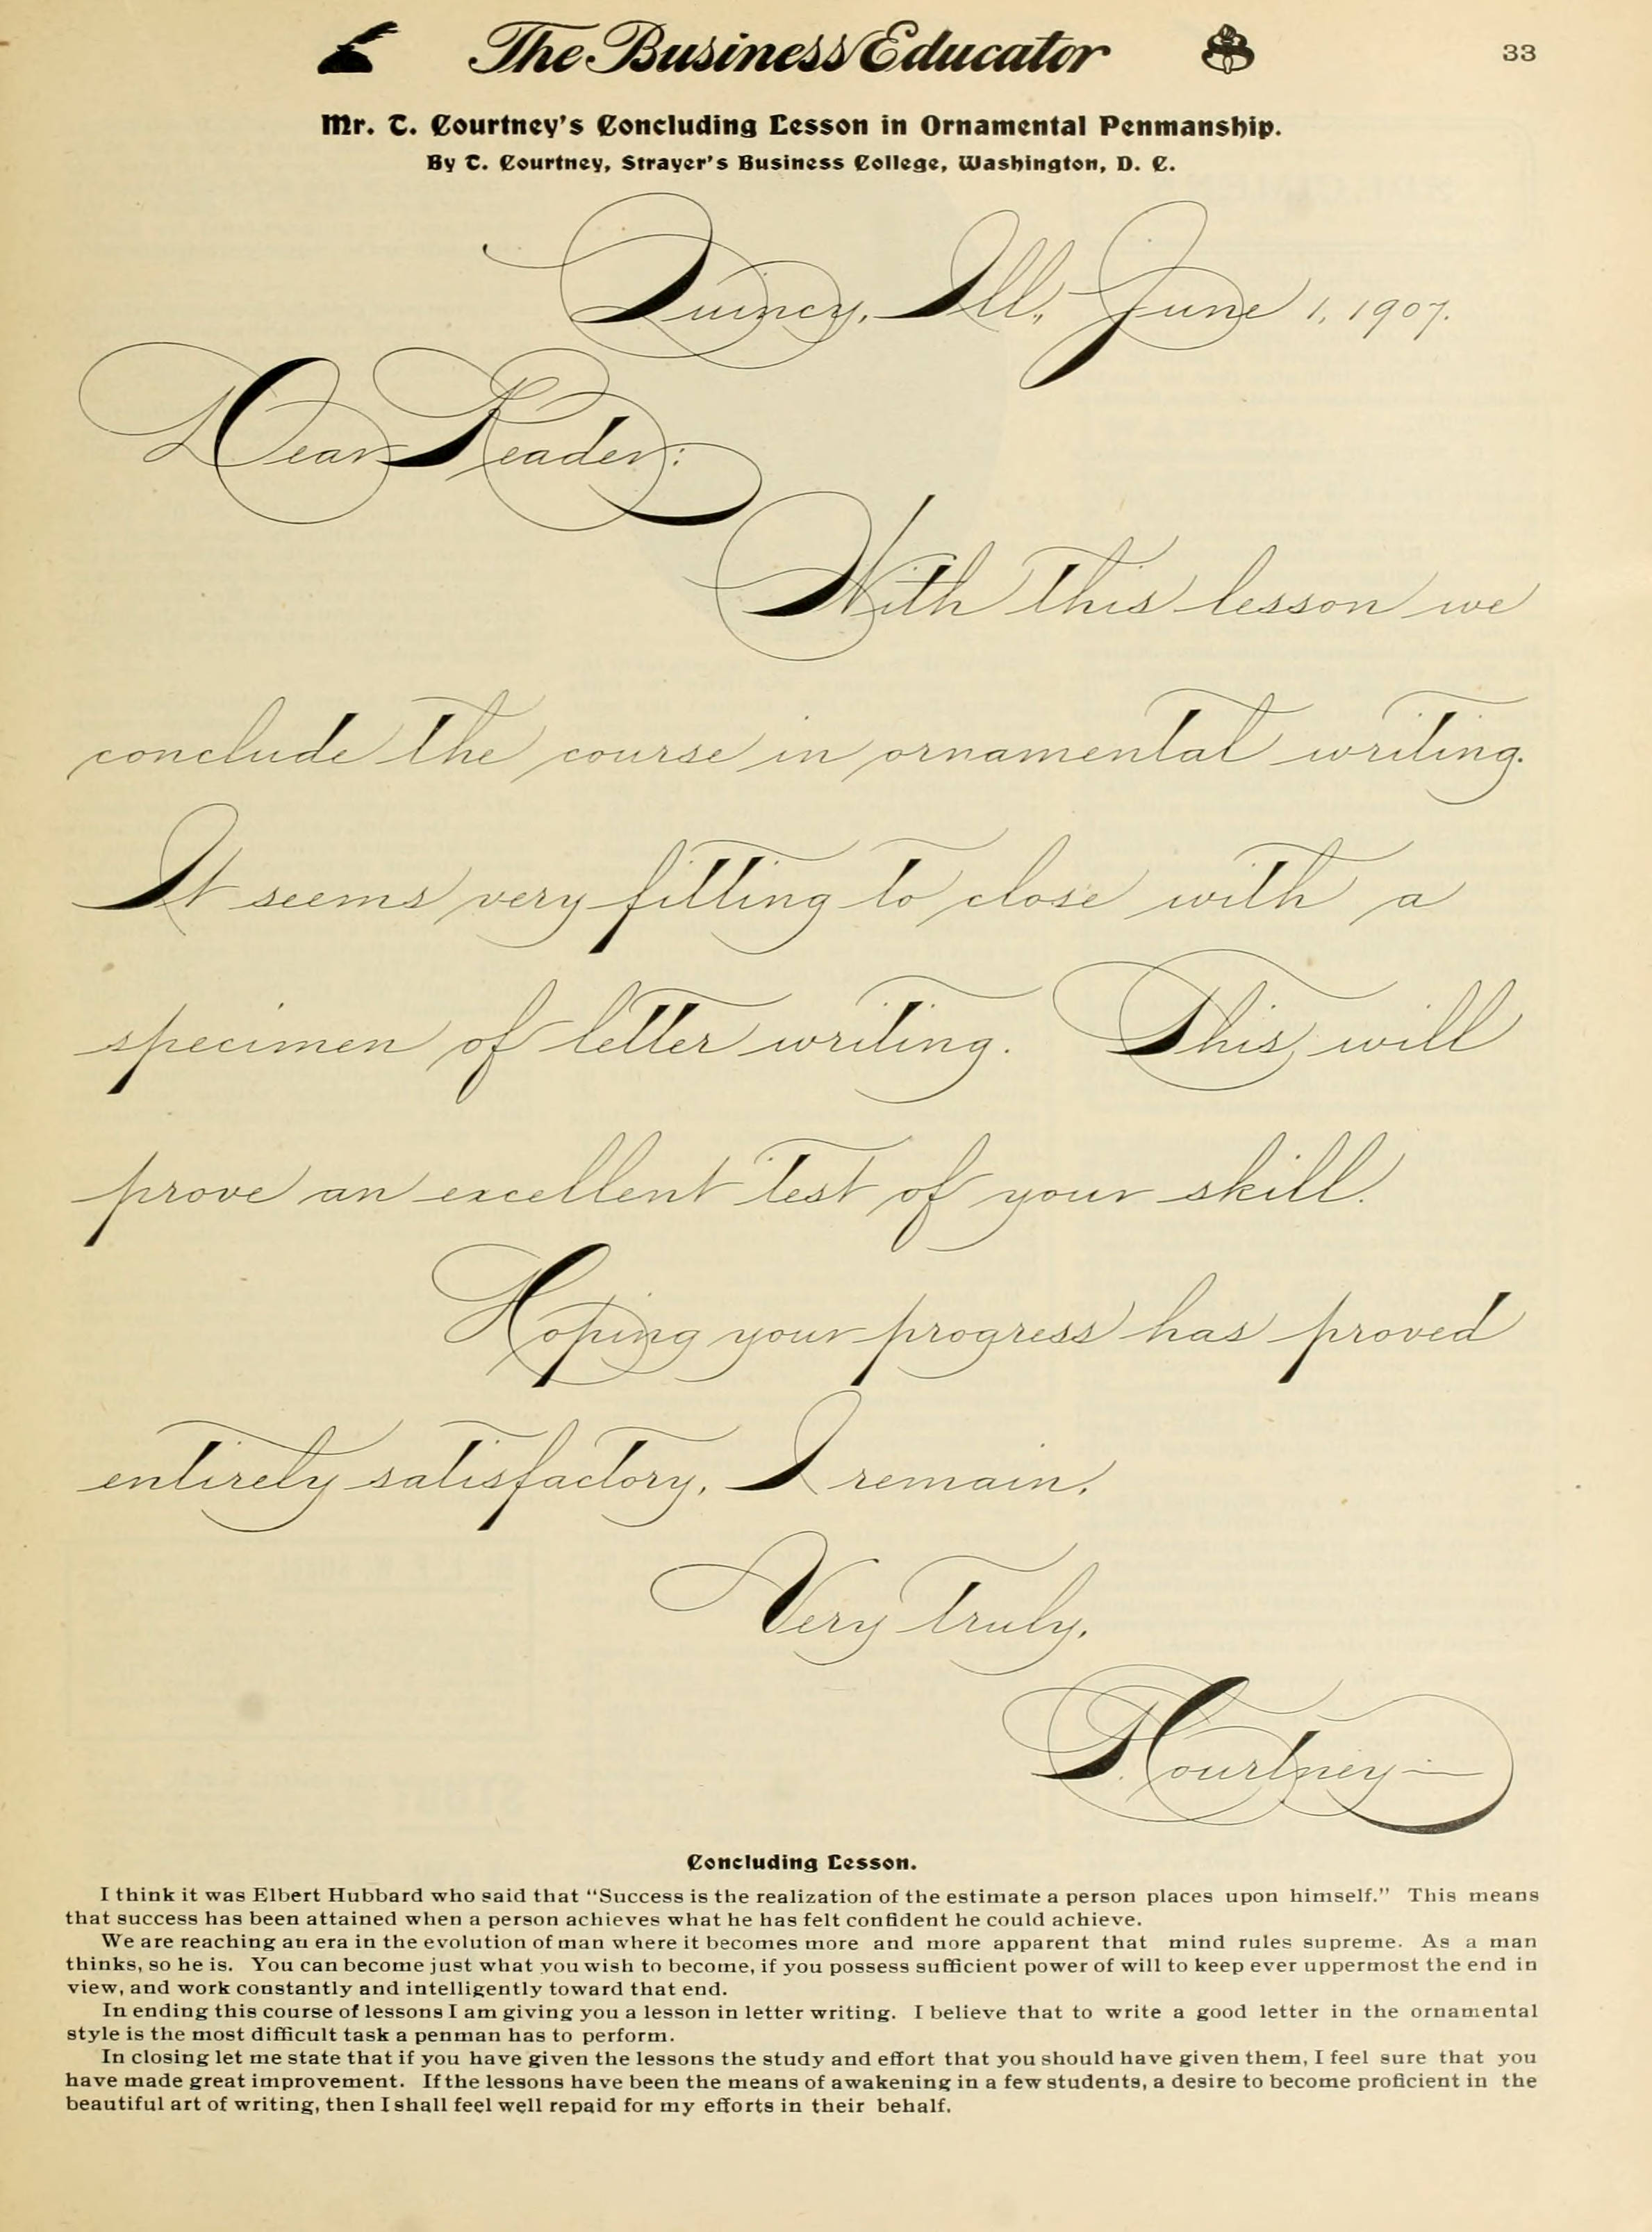 The Business Educator
33
Mr. T. Courtney's Concluding Lesson in Ornamental Penmanship.
By T. Courtney, Strayer's Business College, Washington, D. C.
Quincy, Ill., June 1, 1907.
Dear Reader:
With this lesson we
conclude the course in ornamental writing.
It seems very fitting to close with a
specimen of letter writing. This will
prove an excellent test of your skill.
Hoping your progress has proved
entirely satisfactory, I remain,
Very truly,
T. Courtney
Concluding Lesson.
I think it was Elbert Hubbard who said that "Success is the realization of the estimate a person places upon himself." This means
that success has been attained when a person achieves what he has felt confident he could achieve.
We are reaching an era in the evolution of man where it becomes more and more apparent that mind rules supreme. As a man
thinks, so he is. You can become just what you wish to become, if you possess sufficient power of will to keep ever uppermost the end in
view, and work constantly and intelligently toward that end.
In ending this course of lessons I am giving you a lesson in letter writing. I believe that to write a good letter in the ornamental
style is the most difficult task a penman has to perform.
In closing let me state that if you have given the lessons the study and effort that you should have given them, I feel sure that you
have made great improvement. If the lessons have been the means of awakening in a few students, a desire to become proficient in the
beautiful art of writing, then I shall feel well repaid for my efforts in their behalf.